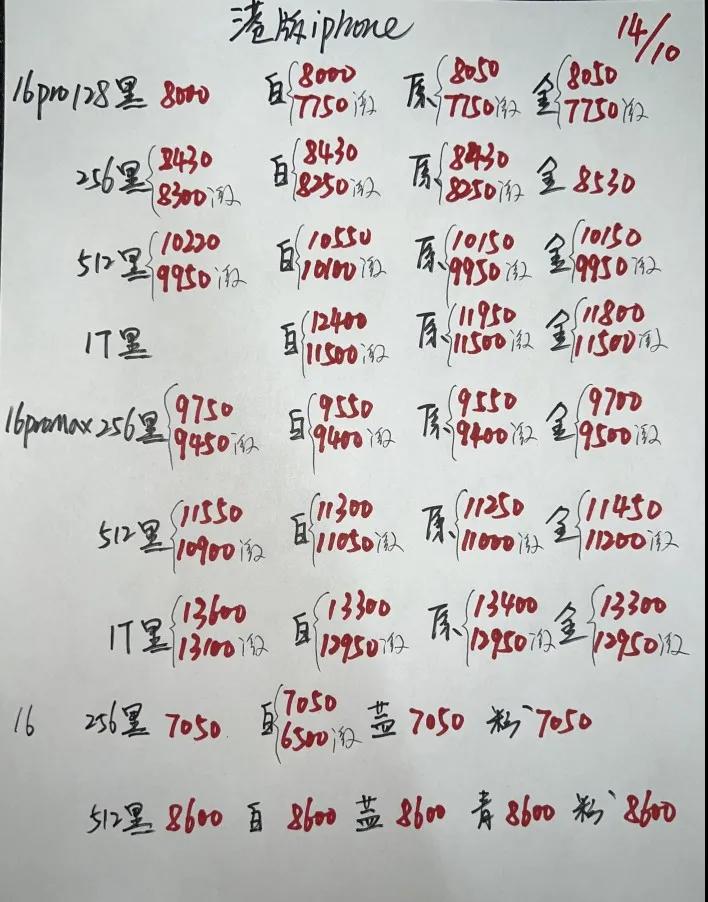 港版iphone 14/10
16pro128黑 8000 白 8000 原 8050 金 8050
7750激 7750激 7750激
256黑 8430 白 8430 原 8430 金 8530
8300激 8250激 8250激
512黑 10220 白 10550 原 10150 金 10150
9950激 10100激 9950激 9950激
1T黑 白 12400 原 11950 金 11800
11500激 11500激 11500激
16promax256黑 9750 白 9550 原 9550 金 9700
9450激 9400激 9400激 9500激
512黑 11550 白 11300 原 11250 金 11450
10900激 11050激 11000激 11200激
1T黑 13600 白 13300 原 13400 金 13300
13100激 12950激 12950激 12950激
16 256黑 7050 白 7050 蓝 7050 粉 7050
6500激
512黑 8600 白 8600 蓝 8600 青 8600 粉 8600